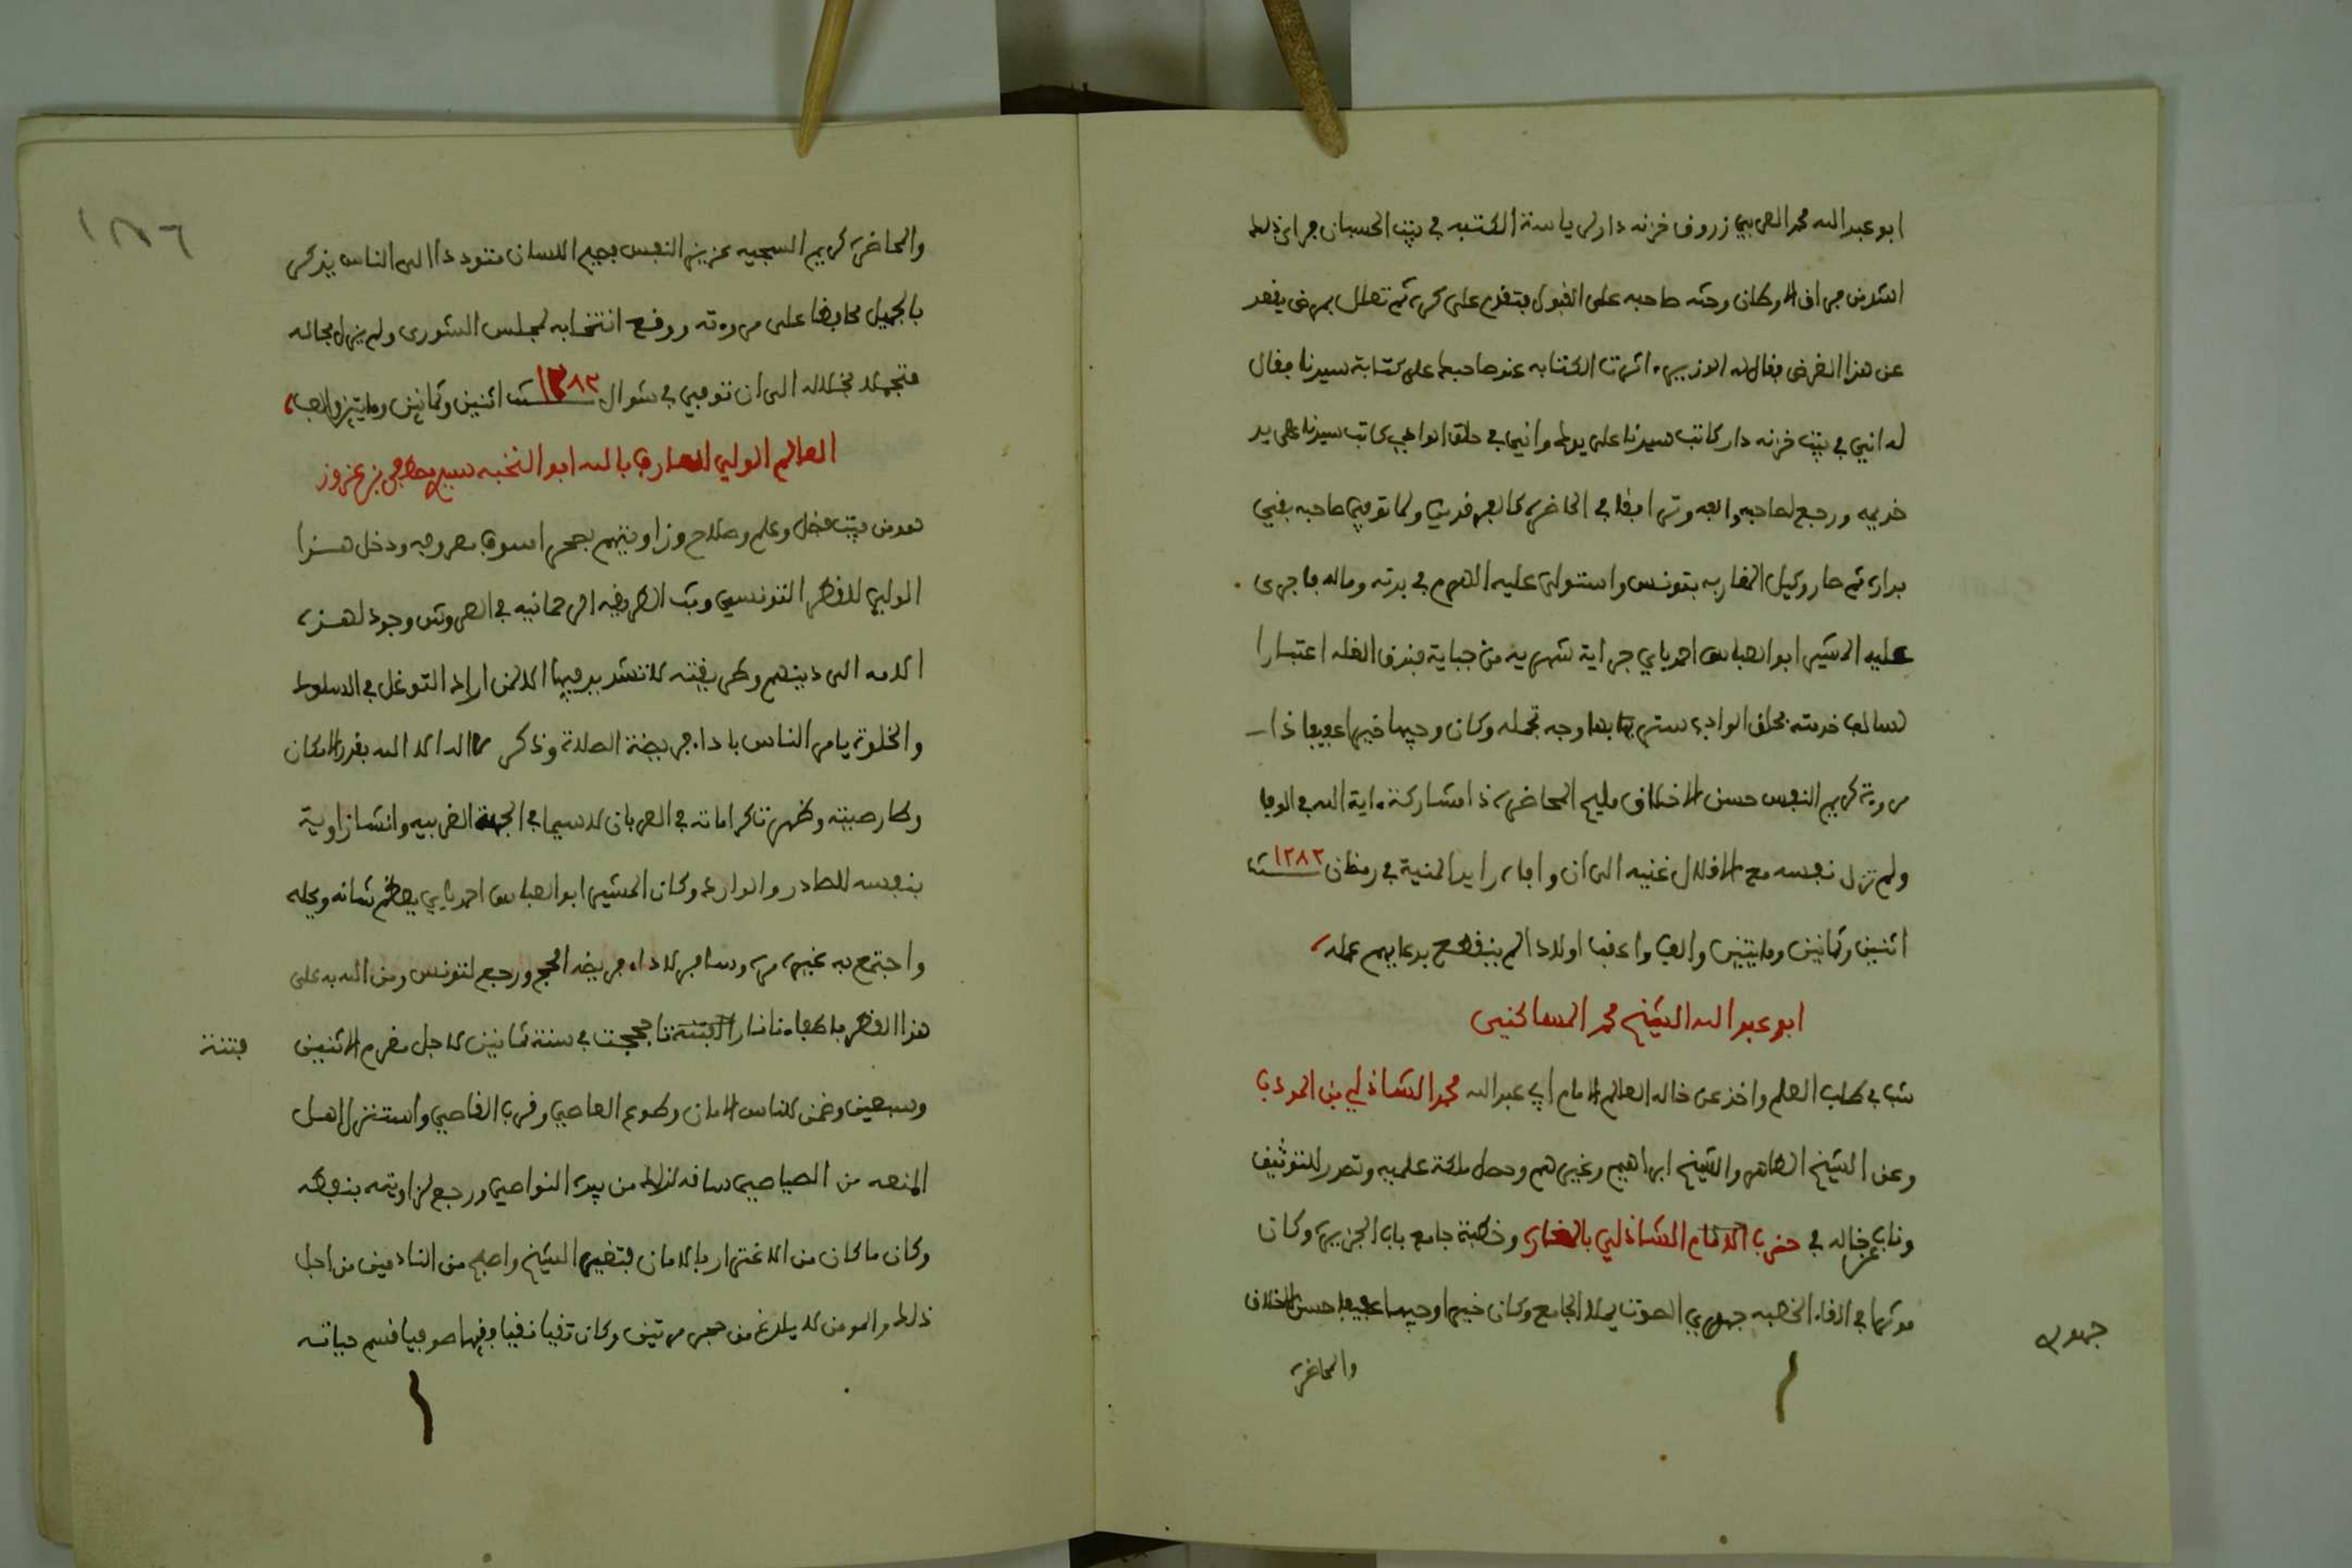 ابو عبد الله محمد العربي زروق خزنه دار لرياسة الكتبه في بيت الحسبان جراى ذلك
اشد من فراق الاوطان وحثه صاحبه على القبول فتقدم على كره ثم تعلل بمرض يقعد
عن هذا الغرض فقال له الوزير اثرت الكتابه عند صاحبك على كتابة سيدنا فقال
له انني في بيت خزنه دار كاتب سيدنا على يدك وانني في حلق الوادي كاتب سيدنا على يد
خديمه ورجع لصاحبه والفه وترافقا في الحاضره كالفرقدين ولما توفي صاحبه بقي
بداره ثم صار وكيل المغاربه بتونس واستولى عليه الهرم في بدنه وماله فاجرى
عليه المشير ابو العباس احمد باي جراية شهرية من جباية فندق الغله اعتبارا
لسالف خدمته بحلق الوادي ستر بها وجه تجمله وكان وجيها خيرا عفيفا ذا
مروة كريم النفس حسن الاخلاق مليح المحاضره ذا مشاركة اية الله في الوفا
ولم تزل نفسه مع الاقلال غنيه الى ان وافاه رايد المنية في رمظان سنة ١٢٨٢
اثنين وثمانين ومايتين والف واعقب اولادا لم ينقطع بدعايهم عمله
ابو عبد الله الشيخ محمد المساكني
شب في طلب العلم واخذ عن خاله العالم الامام ابي عبد الله محمد الشاذلي بن المودب
وعن الشيخ الطاهر والشيخ ابراهيم وغيرهم وحصل ملكة علميه وتصدر للتوثيق
وناب عن خاله في حزب الامام الشاذلي بالمغاره وخطبة جامع باب الجزيره وكان
موثرا في القاء الخطبه جهوري الصوت يملا الجامع وكان خيرا وجيها عفيفا حسن الاخلاق
جهوري
والمحاضره
١٨٦
والمحاضره كريم السجيه عزيز النفس فصيح اللسان متوددا الى الناس يذكر
بالجميل محافظا على مروته ووقع انتخابه لمجلس الشورى ولم يزل بحاله
متجملا بخلاله الى ان توفي في شوال سنة ١٢٨٢ اثنين وثمانين ومايتين والف
العالم الولي العارف بالله ابو النخبه سيدي مصطفى بن عزوز
هو من بيت فضل وعلم وصلاح وزاويتهم بصحرا سوف معروفه ودخل هذا
الولي للقطر التونسي وبث الطريقه الرحمانيه في العروش وجود لهذه
الامه الى دينهم وطريقته لا تشديد فيها الا لمن اراد التوغل في السلوك
والخلوة يامر الناس باداء فريضة الصلاة وذكر لا اله الا الله بقدر الامكان
وطار صيته وظهرت كراماته في العربان لا سيما في الجهة الغربيه وانشا زاوية
بنفسه للصادر والوارد وكان المشير ابو العباس احمد باي يعظم شانه ويجله
واجتمع به غير مره وسافر لاداء فريضة الحج ورجع لتونس ومن الله به على
هذا القطر باطفاء نار الفتنة تاججت في سنة ثمانين لاجل مغرم الاثنين
فتنة
وسبعين وضمن للناس الامان وطوع العاصي وقرب القاصي واستنزل اهل
المنعه من الصياصي ساقه لذلك من بيده النواصي ورجع لزاويته بنفطه
وكان ما كان من الاغترار بالامان فتغير الشيخ واصبح من النادمين من اجل
ذلك والمومن لا يلدغ من جحر مرتين وكان تقيا نقيا فقيها صوفيا قسم حياته